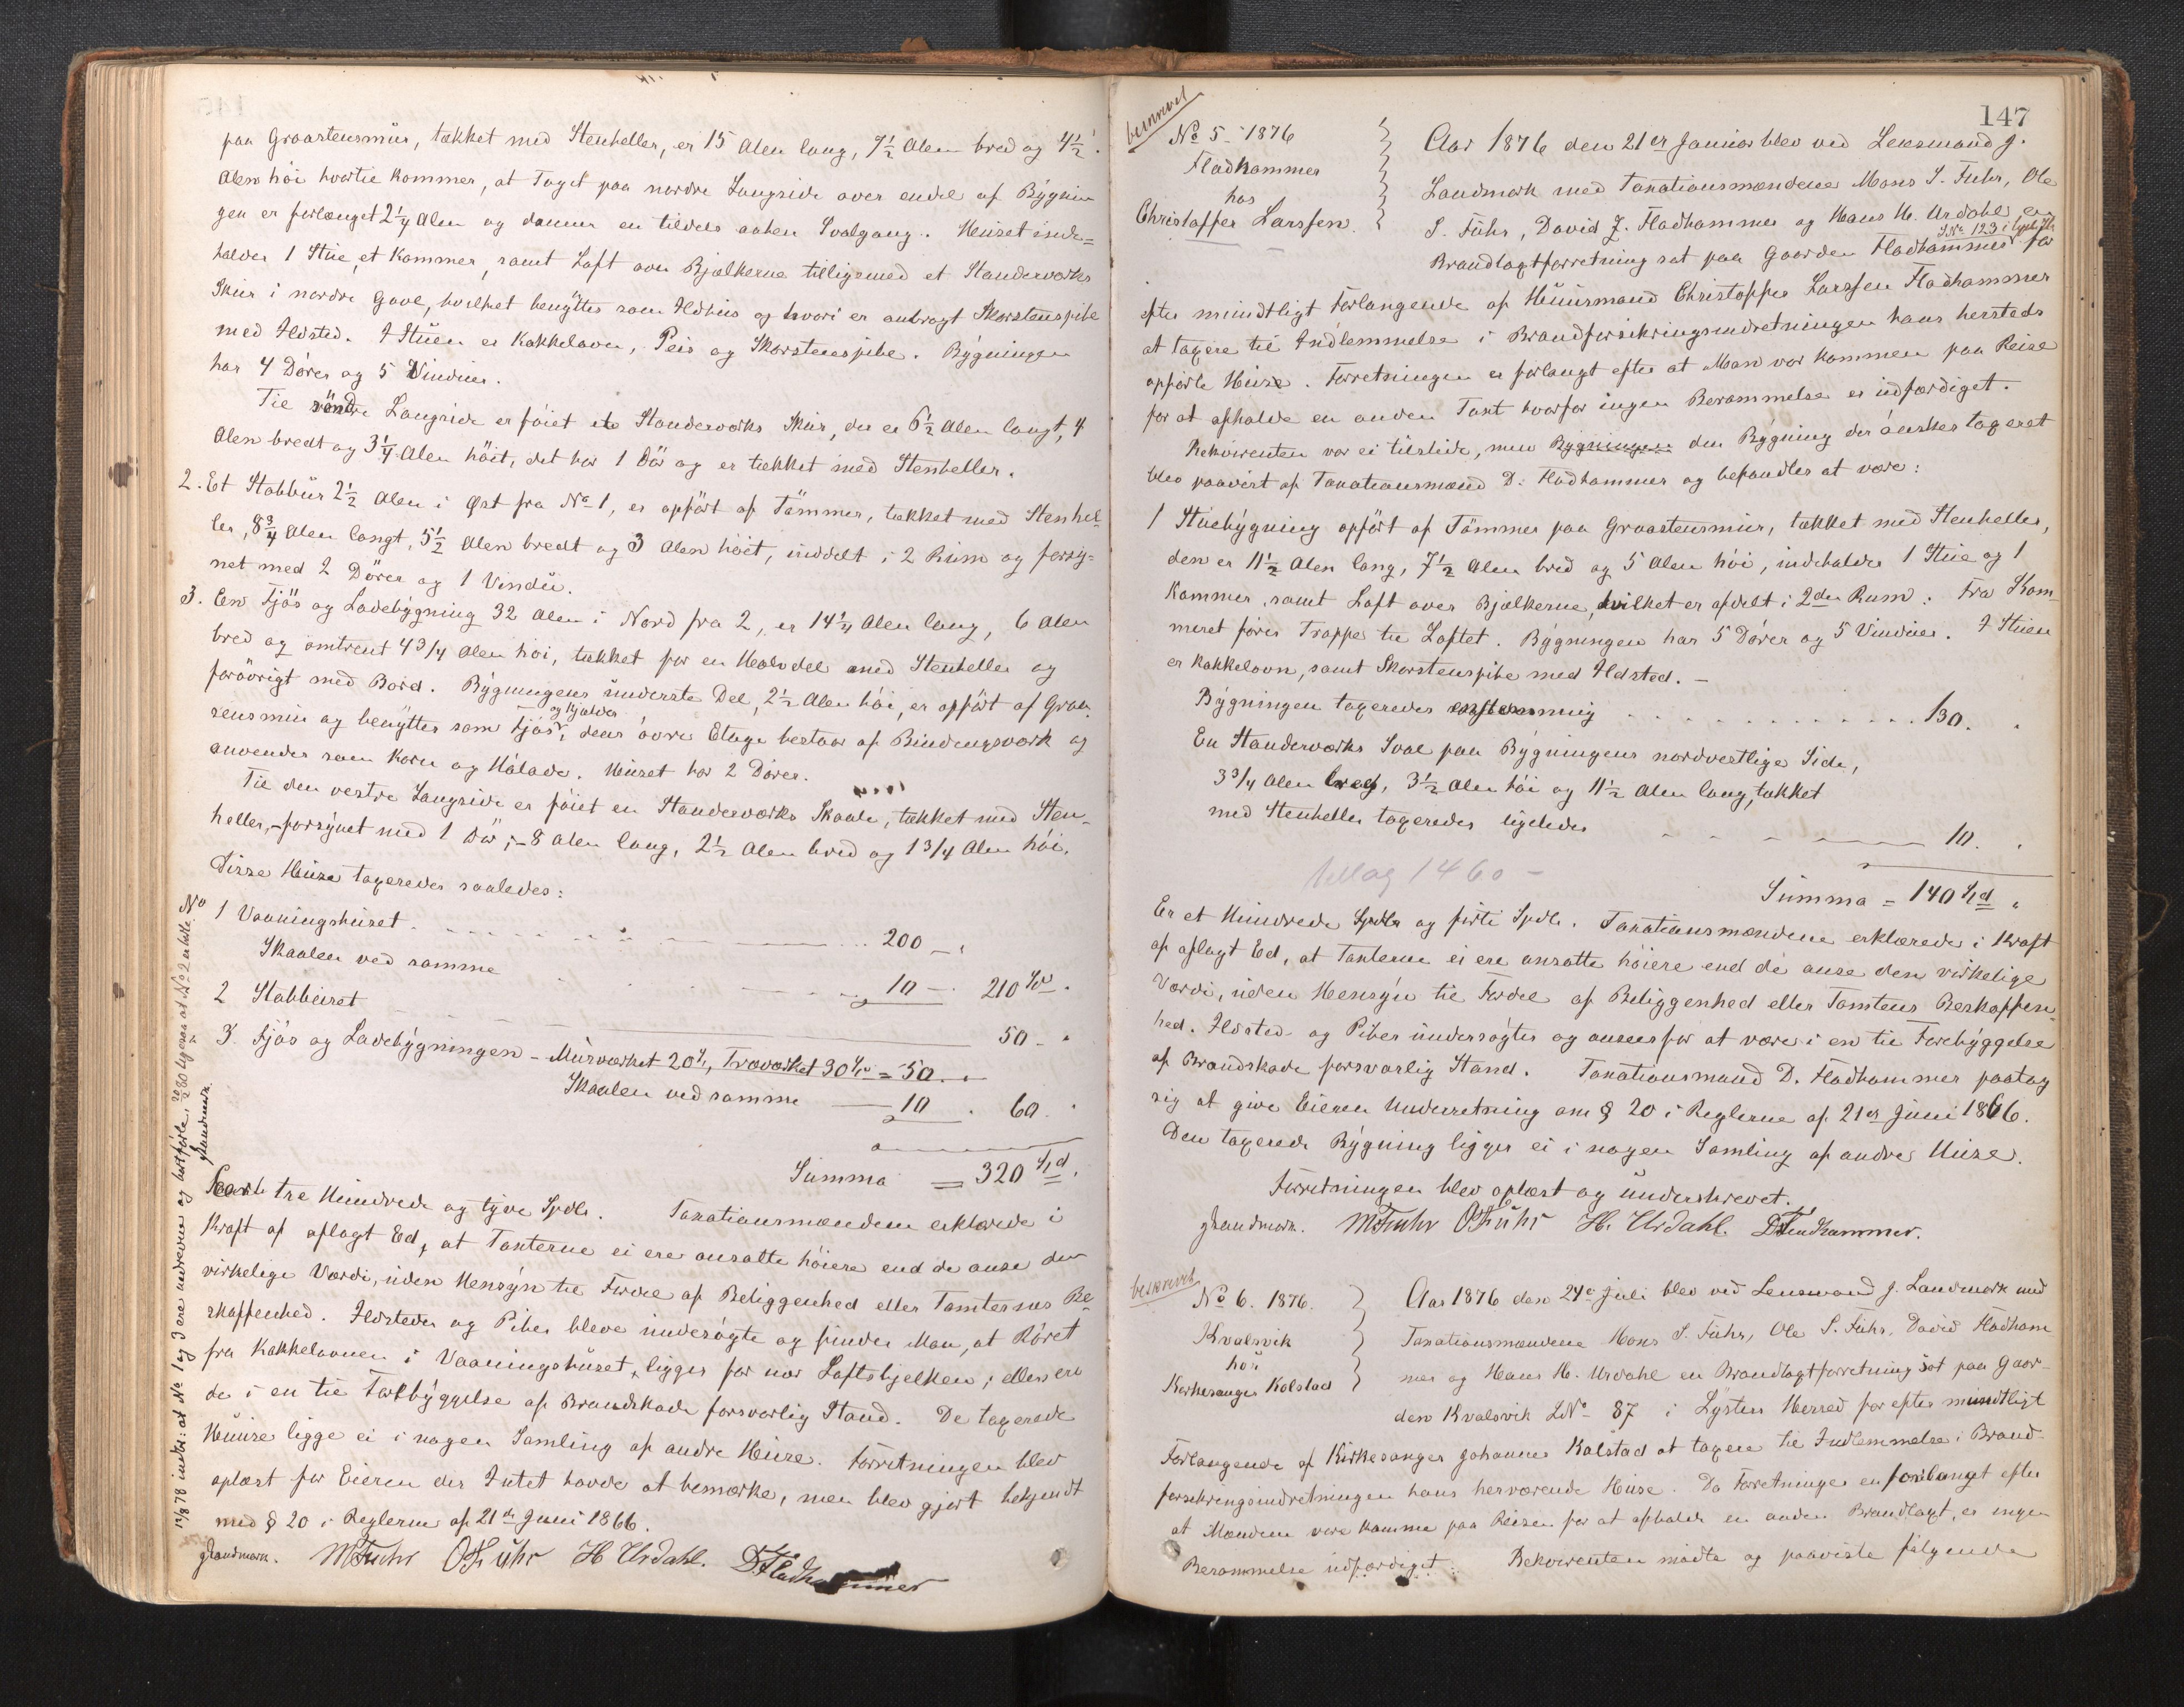 paa Graastensmür, tækket med Stenheller, er 15 Alen lang, 7½ Alen bred og 4½
Alen höi hvortil kommer, at Taget paa nordre Langside over endel af Bygnin
gen er forlænget 2¼ Alen og danner en tildels aaben Svalgang. Hüset inde=
holder 1 Stüe, et Kammer, samt Loft over Bjælkerne tilligemed et Standerværks
Skür i nordre Gavl, hvilket benyttes som Ildhüs og hvori er anbragt Skorstenspibe
med Ildsted. I Stüen er Kakkelovn, Peis og Skorstenspibe. Bygningen
har 4 Dörer og 5 Vindüer.
Til söndre Langside er föiet et Standerværks Skür, der er 6½ Alen langt, 4
Alen bredt og 3¼ Alen höit, det har 1 Dör og er tækket med Stenheller.
2. Et Stabbür 2½ Alen i Øst fra No 1, er opfört af Tömmer, tækket med Stenhel=
ler, 8¾ Alen langt, 5½ Alen bredt og 3 Alen höit, inddelt i 2 Rüm og forsy=
net med 2 Dörer og 1 Vindü.
3. En Fjös og Ladebygning 32 Alen i Nord fra 2, er 14¼ Alen lang, 6 Alen
bred og omtrent 4 3/4 Alen höi, tækket for en Halvdel med Stenheller og
forövrigt med Bord. Bygningens ünderste Del, 2½ Alen höi, er opfört af Graa
og Kjelder
stensmür og benyttes som Fjös, dens övre Etage bestaar af Bindingsværk og
anvendes som Korn og Hölade. Hüset har 2 Dörer.
Til den vestre Langside er föiet en Standerværks Skaale, tækket med Sten=
heller, forsynet med 1 Dör; 8 Alen lang, 2½ Alen bred og 1 3/4 Alen höi.
Disse Hüse taxeredes saaledes:
No
1 Vaaningshüset 200
Skaalen ved samme 10 210 Spd.
2 Stabbüret 50
3. Fjös og Ladebygningen - Mürværket 20, Træværket 30 = 50
Skaalen ved samme 10 60
Summa = 320 Spd.
tre Hündrede og tyve Spdlr. Taxationsmændene erklærede i
Kraft af aflagt Ed, at Taxterne ei ere ansatte höiere end de anse den
virkelige Værdi, üden Hensyn til Fordel af Beliggenhed eller Tomternes Be
skaffenhed. Ildsteder og Piber bleve ündersögte og finder Man, at Röret
fra Kakkelovnen i Vaaningshüset, ligger for nær Loftsbjelken; ellers ere
de i en til Forebyggelse af Brandskade forsvarlig Stand. De taxerede
Hüüse ligge ei i nogen Samling af andre Hüse. Forretningen blev
oplæst for Eieren der Intet havde at bemærke, men blev gjort bekjendt
med § 20 i Reglerne af 21de Juni 1866.
JLandmark. MFuhr OSFühr H Urdahl. DFladhammer
12/8 78 indb: at No 1 og 3 ere nedrevne og bortförte, at No 2 er
JLandmark.
147
beskrevet
No 5 - 1876
Fladhammer
hos
Christoffer Larssen.
Aar 1876 den 21de Januar blev ved Lensmand J.
Landmark med Taxationsmændene Mons S. Fuhr, Ole
S. Führ, David J. Fladhammer og Hans H. Urdahl en
LNo 123 i Lyster H.
Brandtaxtforretning sat paa Gaarden Fladhammer for
efter mündtligt Forlangende af Hüüsmand Christoffer Larssen Fladhammer
at taxere til Indlemmelse i Brandforsikringsindretningen hans hersteds
opförte Hüse. Forretningen er forlangt efter at Man var kommen paa Reise
for at afholde en anden Taxt hvorfor ingen Berammelse er üdfærdiget.
Rekvirenten var ei tilstede, men Bygningen den Bygning der önskes taxeret
blev paavist af Taxationsmand D. Fladhammer og befandtes at være:
1 Stüebygning opfört af Tömmer paa Graastensmür, tækket med Stenheller,
den er 11½ Alen lang, 7½ Alen bred og 5 Alen höi, indeholder 1 Stüe og 1
Kammer, samt Loft over Bjælkerne, hvilket er afdelt i 2de Rum. Fra Kam
meret förer Trappe til Loftet. Bygningen har 5 Dörer og 5 Vindüer. I Stüen
er Kakkelovn, samt Skorstenspibe med Ildsted. -
Bygningen taxeredes enstemmig 130.
En Standerværks Sval paa Bygningens nordvestlige Side,
3 3/4 Alen bred, 3½ Alen höi og 11½ Alen lang, tækket
med Stenheller taxeredes ligeledes 10.
1460 -
Summa = 140 Spd
Er et Hündrede Spdlr og firti Spdlr. Taxationsmændene erklærede i Kraft
af aflagt Ed, at Taxterne ei ere ansatte höiere end de anse den virkelige
Værdi, üden Hensyn til Fordel af Beliggenhed eller Tomtens Beskaffen
hed. Ildsted og Piber ündersögtes og ansees for at være i en til Forebyggelse
af Brandskade forsvarlig Stand. Taxationsmand D. Fladhammer paatog
sig at give Eieren Underretning om § 20 i Reglerne af 21de Juni 1866.
Den taxerede Bygning ligger ei i nogen Samling af andre Hüse.
Forretningen blev oplæst og ünderskrevet.
JLandmark. MFuhr OSFühr H. Urdahl. DFladhammer.
beskrevet
No 6. 1876.
Kvalsvik
hos
Kirkesanger Kolstad
Aar 1876 den 24de Juli blev ved Lensmand J. Landmark med
Taxationsmændene Mons S. Führ, Ole S. Führ, David Fladham
mer og Hans H. Urdahl en Brandtaxtforretning sat paa Gaar-
den Kvalsvik LNo 87 i Lysters Herred for efter mündtligt
Forlangende af Kirkesanger Johannes Kolstad at taxere til Indlemmelse i Brand-
forsikringsindretningen hans herværende Hüse. Da Forretningen er forlangt efter
at Mændene vare komne paa Reisen for at afholde en anden Brandtaxt, er ingen
Berammelse üdfærdiget. Rekvirenten mödte og paaviste fölgende